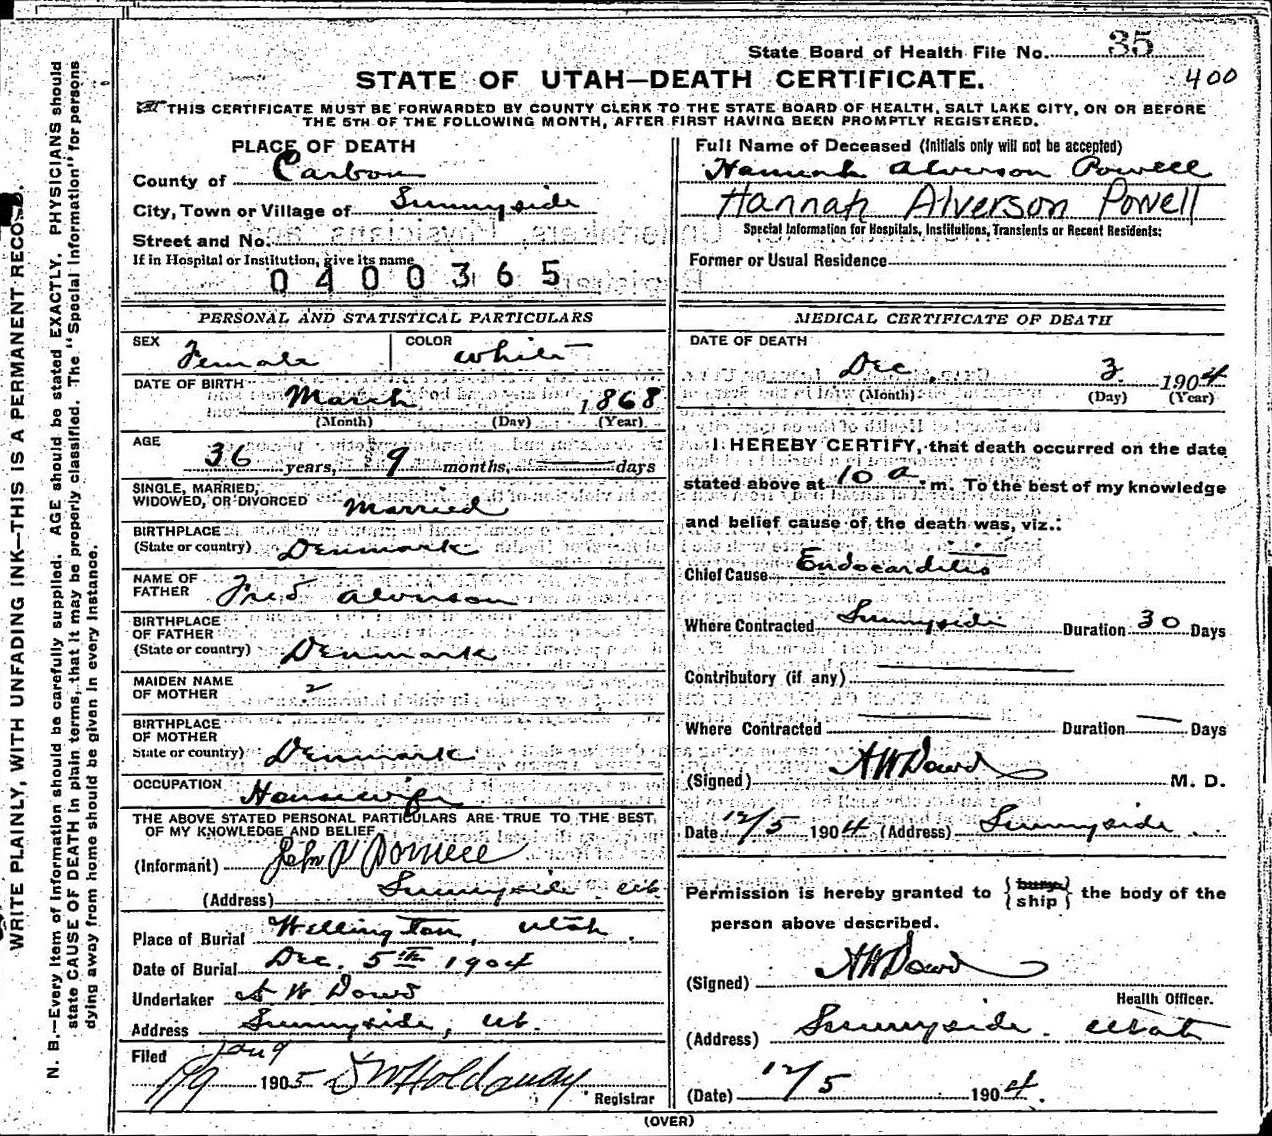 State Board of Health File No. 35
400
STATE OF UTAH—DEATH CERTIFICATE.
THIS CERTIFICATE MUST BE FORWARDED BY COUNTY CLERK TO THE STATE BOARD OF HEALTH, SALT LAKE CITY, ON OR BEFORE
THE 5TH OF THE FOLLOWING MONTH, AFTER FIRST HAVING BEEN PROMPTLY REGISTERED.
PLACE OF DEATH
County of Carbon
City, Town or Village of Sunnyside
Street and No.
If in Hospital or Institution, give its name
0400365
Full Name of Deceased (Initials only will not be accepted)
Hannah Alverson Powell
Hannah Alverson Powell
Special Information for Hospitals, Institutions, Transients or Recent Residents:
Former or Usual Residence
PERSONAL AND STATISTICAL PARTICULARS
SEX Female COLOR White
DATE OF BIRTH March 1868
(Month) (Day) (Year)
AGE
36 years, 9 months, — days
SINGLE, MARRIED,
WIDOWED, OR DIVORCED Married
BIRTHPLACE
(State or country) Denmark
NAME OF
FATHER Fred Alverson
BIRTHPLACE
OF FATHER
(State or country) Denmark
MAIDEN NAME
OF MOTHER
BIRTHPLACE
OF MOTHER
State or country) Denmark
OCCUPATION Housewife
THE ABOVE STATED PERSONAL PARTICULARS ARE TRUE TO THE BEST
OF MY KNOWLEDGE AND BELIEF
(Informant) John
(Address) Sunnyside Ut.
Place of Burial Wellington, Utah.
Date of Burial Dec. 5th 1904
Undertaker A W Dowd
Address Sunnyside, Ut.
Filed Jan 9
1/9 1905 D W Holdaway
Registrar
MEDICAL CERTIFICATE OF DEATH
DATE OF DEATH
Dec. 3 1904
(Month) (Day) (Year)
I HEREBY CERTIFY, that death occurred on the date
stated above at 10 a. m. To the best of my knowledge
and belief cause of the death was, viz.:
Chief Cause Endocarditis
Where Contracted Sunnyside Duration 30 Days
Contributory (if any) —
Where Contracted — Duration — Days
(Signed) A W Dowd M. D.
Date 12/5 1904 (Address) Sunnyside.
Permission is hereby granted to {bury ship} the body of the
person above described.
(Signed) A W Dowd
Health Officer.
(Address) Sunnyside. Utah
(Date) 12/5 1904.
(OVER)
WRITE PLAINLY, WITH UNFADING INK—THIS IS A PERMANENT RECORD.
N. B.—Every item of information should be carefully supplied. AGE should be stated EXACTLY. PHYSICIANS should
state CAUSE OF DEATH in plain terms, that it may be properly classified. The "Special Information" for persons
dying away from home should be given in every instance.